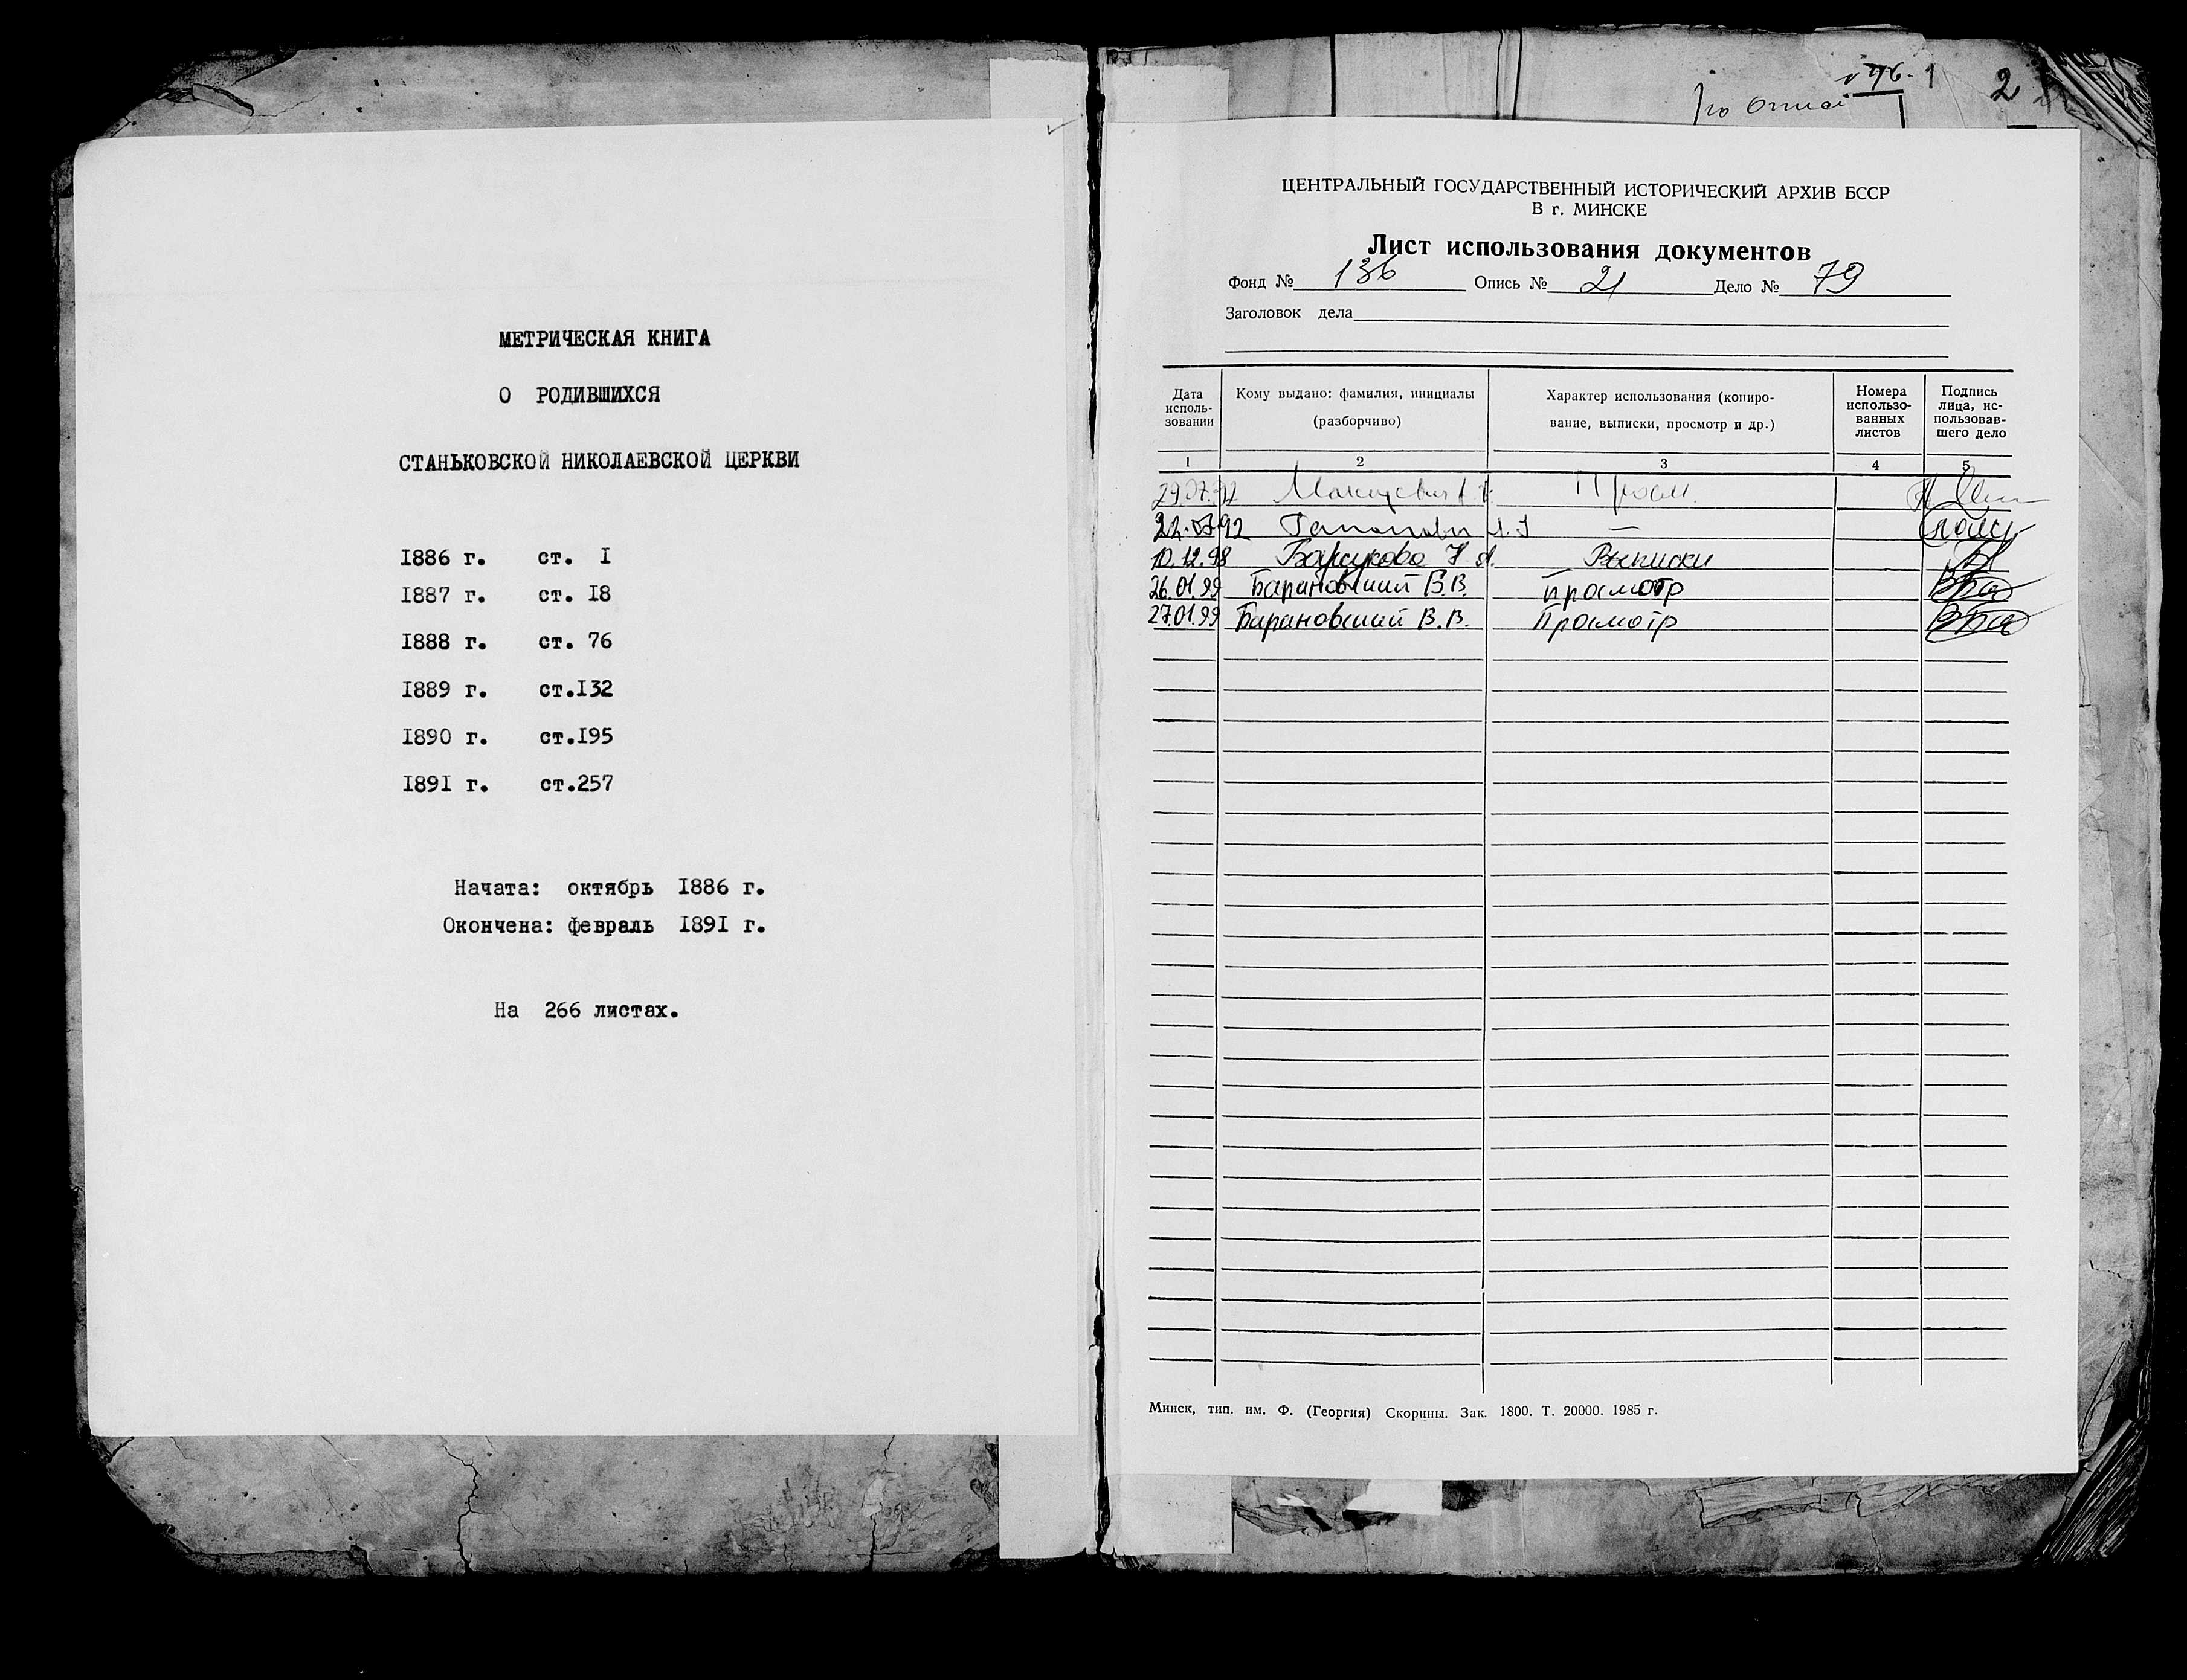 МЕТРИЧЕСКАЯ КНИГА
О РОДИВШИХСЯ
СТАНЬКОВСКОЙ НИКОЛАЕВСКОЙ ЦЕРКВИ
I886 г. ст. I
I887 г. ст. I8
I888 г. ст. 76
I889 г. ст.I32
I890 г. ст.I95
I89I г. ст.257
Начата: октябрь I886 г.
Окончена: февраль I89I г.
На 266 листах.
2
ЦЕНТРАЛЬНЫЙ ГОСУДАРСТВЕННЫЙ ИСТОРИЧЕСКИЙ АРХИВ БССР
В г. МИНСКЕ
Лист использования документов
Фонд № 136 Опись № 21 Дело № 79
Заголовок дела
Дата исполь-зовании
Кому выдано: фамилия, инициалы
(разборчиво)
Характер использования (копиро-
вание, выписки, просмотр и др.)
Номера
использо-
ванных
листов
Подпись
лица, ис-
пользовав-
шего дело
1 2 3 4 5
29.07.92
92
10.12.98 Выписки
26.01.99 Барановский В.В. Просмотр
27.01.99 Барановский В.В. Просмотр
Минск, тип. им. Ф. (Георгия) Скорины. Зак. 1800. Т. 20000. 1985 г.